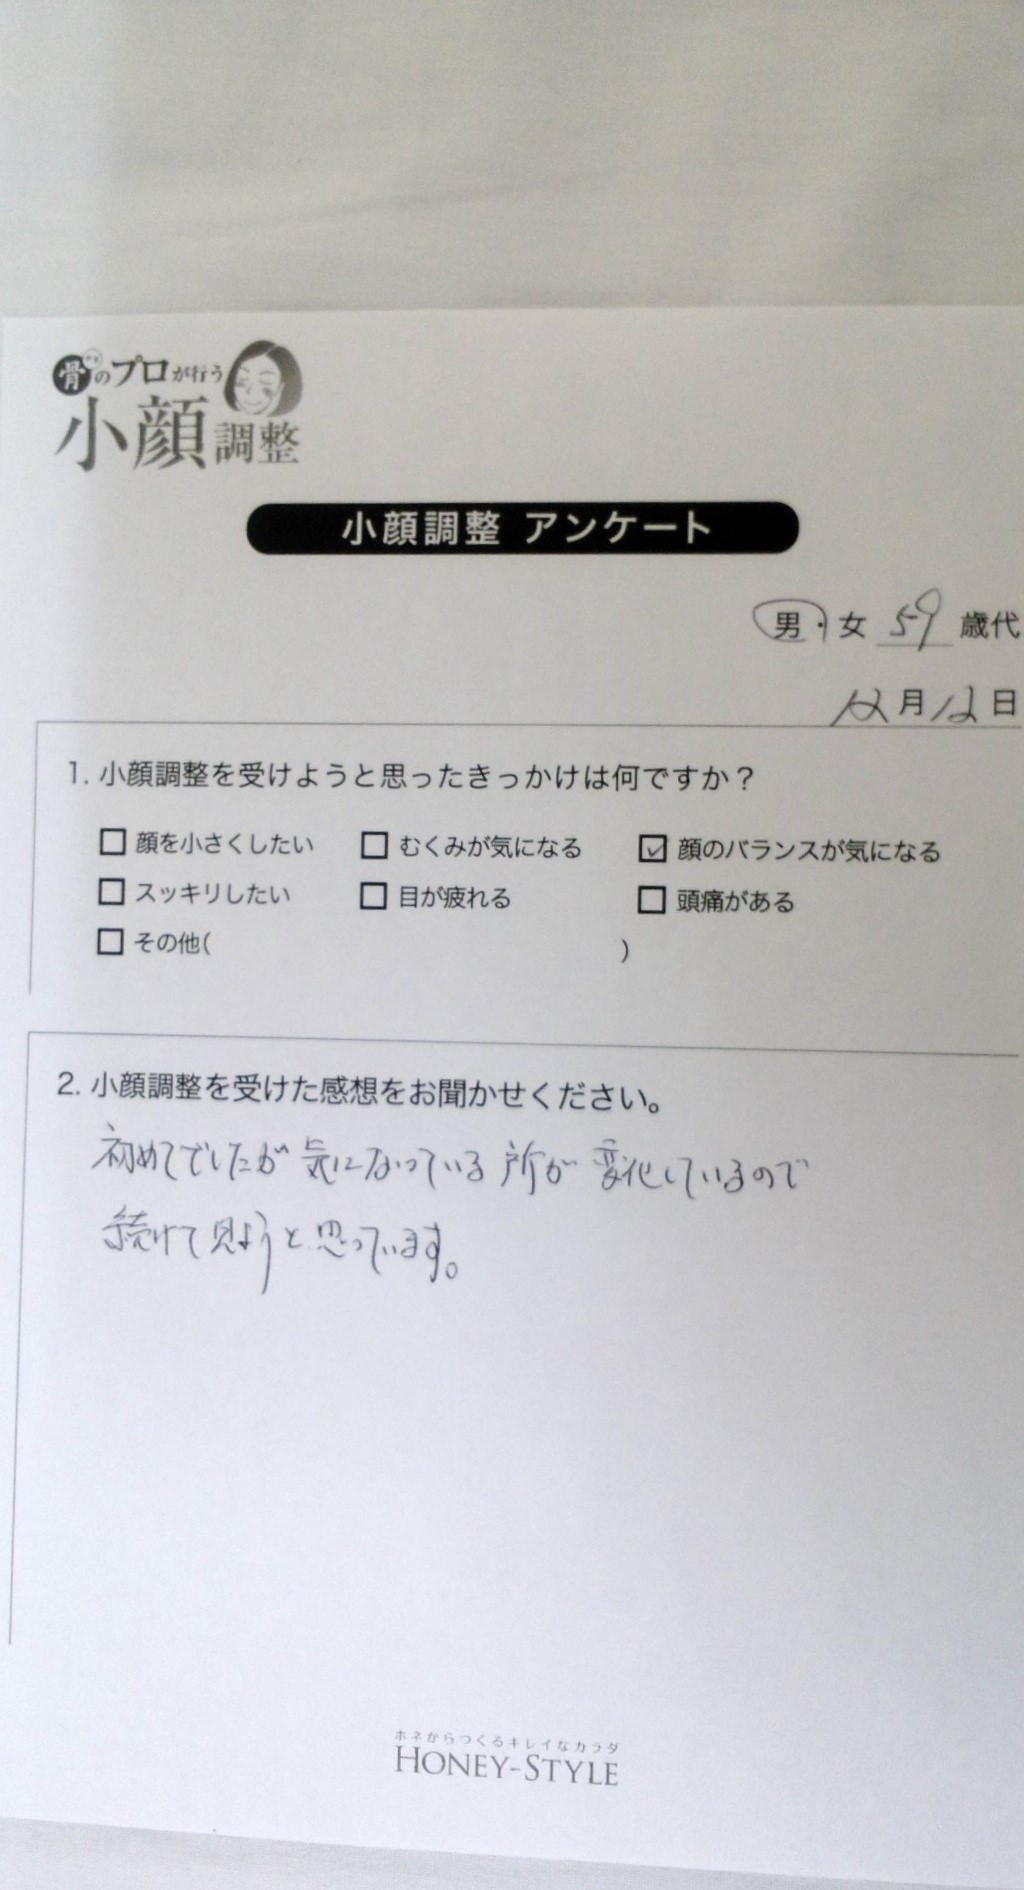 骨のプロが行う
小顔調整
小顔調整 アンケート
男・女 59 歳代
12月12日
1. 小顔調整を受けようと思ったきっかけは何ですか？
□ 顔を小さくしたい □ むくみが気になる ☑ 顔のバランスが気になる
□ スッキリしたい □ 目が疲れる □ 頭痛がある
□ その他( )
2. 小顔調整を受けた感想をお聞かせください。
初めてでしたが気になっている所が変化しているので
続けて見ようと思っています。
ホネからつくるキレイなカラダ
HONEY-STYLE